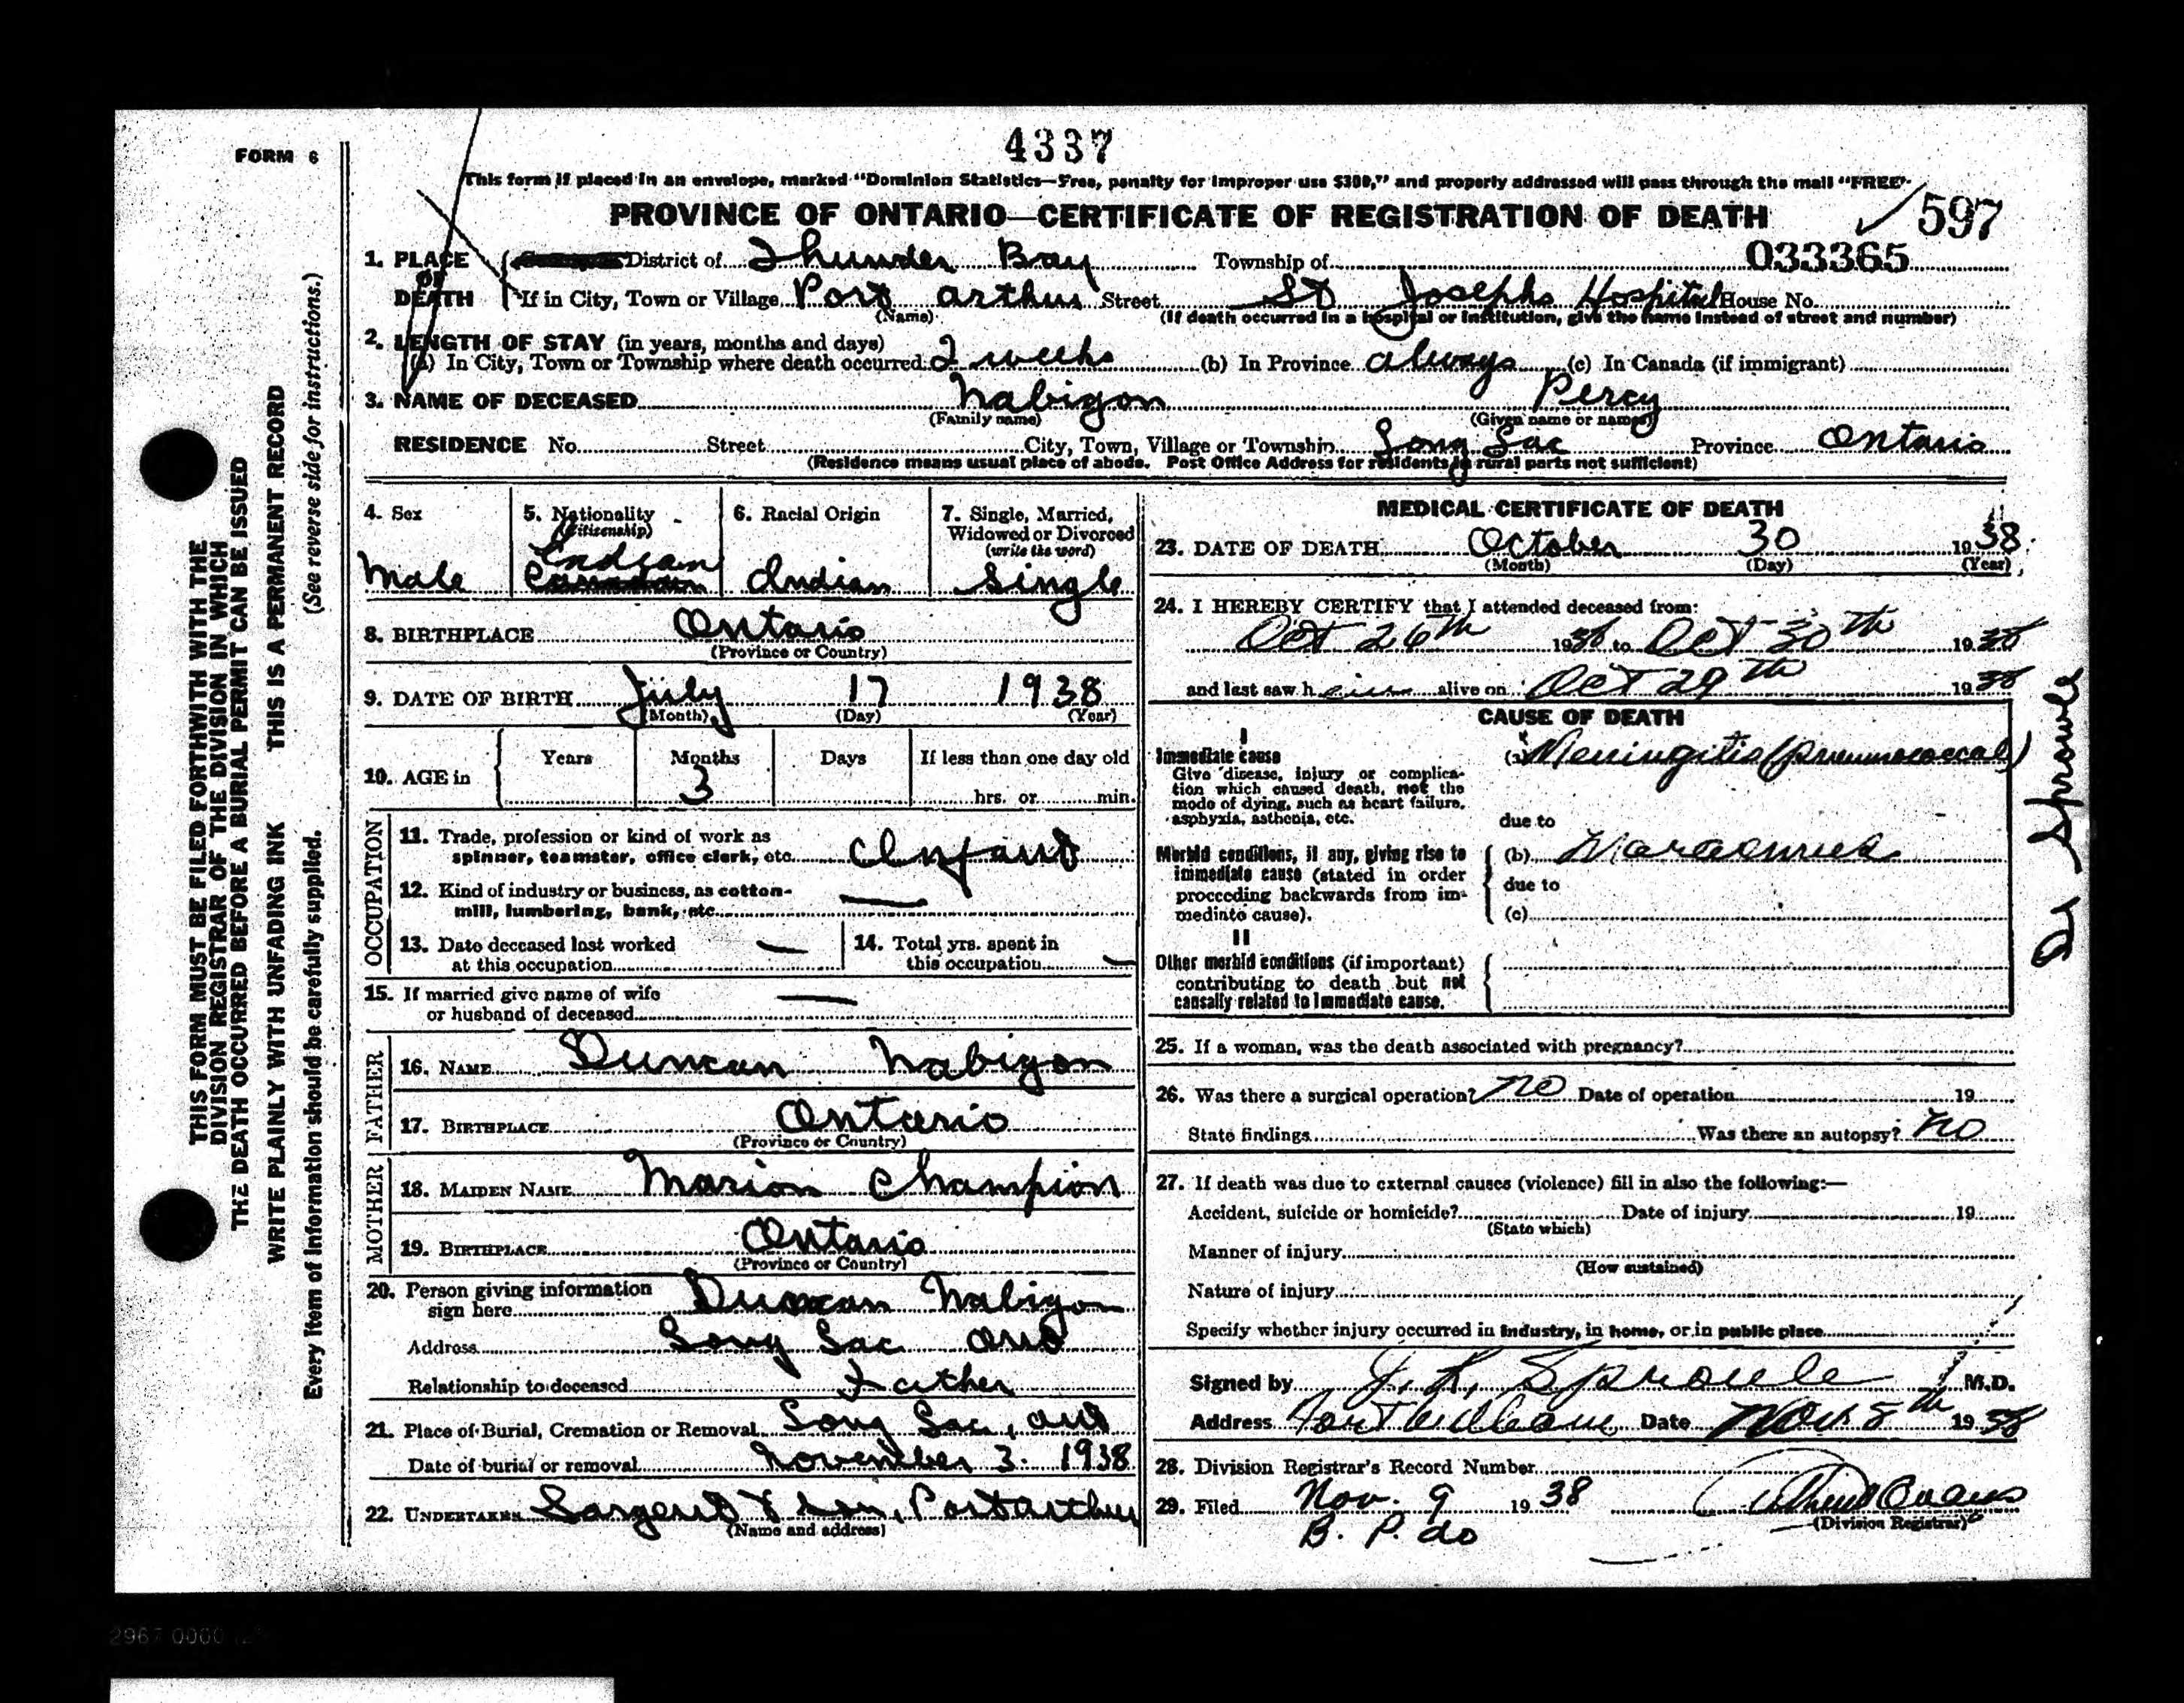 4337
FORM 6
This form if placed in an envelope, marked "Dominion Statistics—Free, penalty for improper use $300," and properly addressed will pass through the mail "FREE"
PROVINCE OF ONTARIO—CERTIFICATE OF REGISTRATION OF DEATH
597
033365
1. PLACE OF DEATH District of Thunder Bay Township of
If in City, Town or Village Port Arthur Street St Josephs Hospital House No.
(Name) (If death occurred in a hospital or institution, give the name instead of street and number)
2. LENGTH OF STAY (in years, months and days)
(a) In City, Town or Township where death occurred 2 weeks (b) In Province always (c) In Canada (if immigrant)
3. NAME OF DECEASED Nabigon Percy
(Family name) (Given name or names)
RESIDENCE No. Street City, Town, Village or Township Long Lac Province Ontario
(Residence means usual place of abode. Post Office Address for residents in rural parts not sufficient)
THIS FORM MUST BE FILED FORTHWITH WITH THE
DIVISION REGISTRAR OF THE DIVISION IN WHICH
THE DEATH OCCURRED BEFORE A BURIAL PERMIT CAN BE ISSUED
WRITE PLAINLY WITH UNFADING INK THIS IS A PERMANENT RECORD
Every item of Information should be carefully supplied. (See reverse side for instructions.)
4. Sex
Male
5. Nationality
(Citizenship)
Indian
Canadian
6. Racial Origin
Indian
7. Single, Married,
Widowed or Divorced
(write the word)
Single
8. BIRTHPLACE Ontario
(Province or Country)
9. DATE OF BIRTH July 17 1938
(Month) (Day) (Year)
10. AGE in Years Months Days If less than one day old
3 hrs. or min.
OCCUPATION
11. Trade, profession or kind of work as
spinner, teamster, office clerk, etc. Infant
12. Kind of industry or business, as cotton-
mill, lumbering, bank, etc. —
13. Date deceased last worked
at this occupation —
14. Total yrs. spent in
this occupation —
15. If married give name of wife
or husband of deceased —
FATHER
16. NAME Duncan Nabigon
17. BIRTHPLACE Ontario
(Province or Country)
MOTHER
18. MAIDEN NAME Marion Champion
19. BIRTHPLACE Ontario
(Province or Country)
20. Person giving information
sign here Duncan Nabigon
Address Long Lac Ont
Relationship to deceased Father
21. Place of Burial, Cremation or Removal Long Lac, Ont
Date of burial or removal November 3. 1938
22. UNDERTAKER Sargent & Son, Port Arthur
(Name and address)
MEDICAL CERTIFICATE OF DEATH
23. DATE OF DEATH October 30 1938.
(Month) (Day) (Year)
24. I HEREBY CERTIFY that I attended deceased from:
Oct 26th 1938 to Oct 30th 1938
and last saw him alive on Oct 29th 1938
CAUSE OF DEATH
I
Immediate cause
Give disease, injury or complica-
tion which caused death, not the
mode of dying, such as heart failure,
asphyxia, asthenia, etc.
(a) Meningitis (pneumococcal)
due to
Morbid conditions, if any, giving rise to
immediate cause (stated in order
proceeding backwards from im-
mediate cause).
(b) Marasmus
due to
(c)
II
Other morbid conditions (if important)
contributing to death but not
causally related to immediate cause.
Dr Sproule
25. If a woman, was the death associated with pregnancy?
26. Was there a surgical operation? no Date of operation 19
State findings Was there an autopsy? no
27. If death was due to external causes (violence) fill in also the following:—
Accident, suicide or homicide? Date of injury 19
(State which)
Manner of injury
(How sustained)
Nature of injury
Specify whether injury occurred in industry, in home, or in public place
Signed by J. K. Sproule M.D.
Address Fort William Date Nov 8th 1938
28. Division Registrar's Record Number
29. Filed Nov. 9 1938 Evans
(Division Registrar)
B. P. do